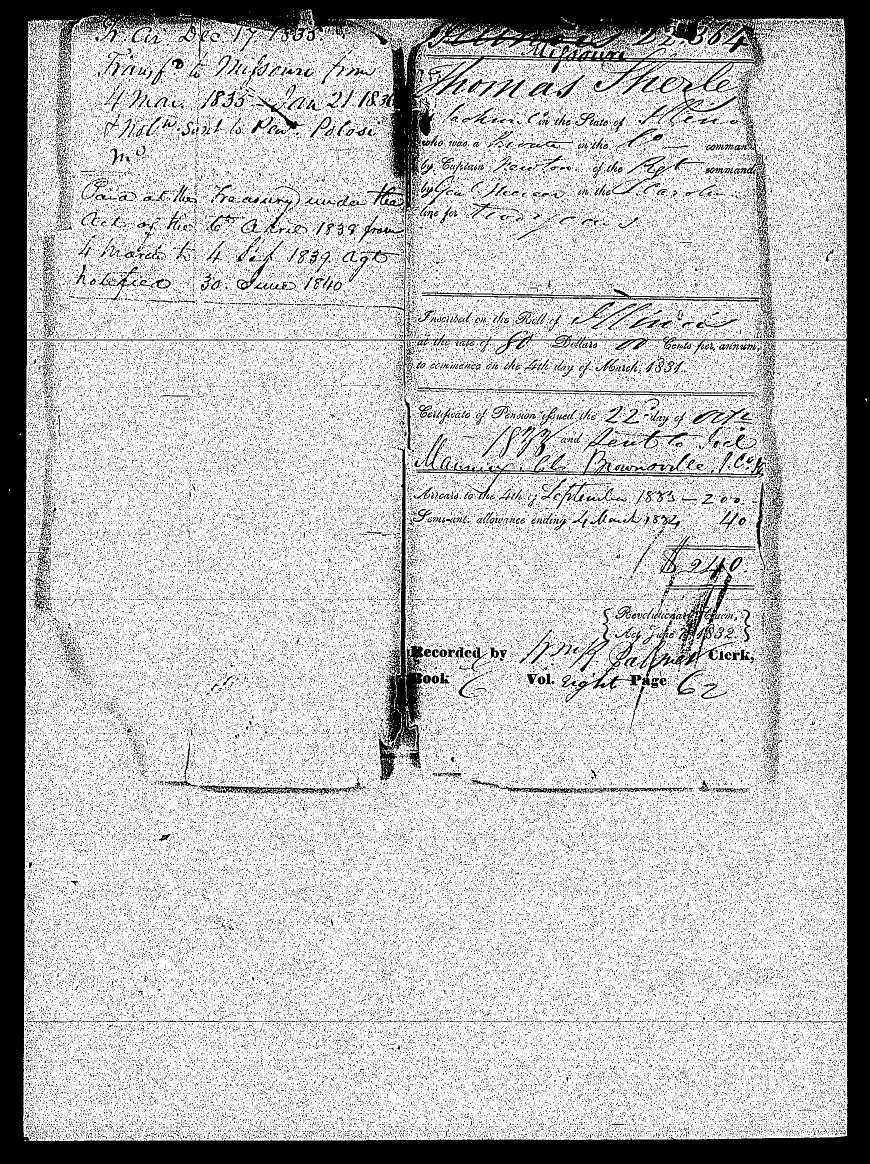 Dec 17 1835
Transfd to Missouri from
4 Mar. 1835 Jan 21 1836
& Notn sent to Penr. Potosi
Mo
Paid at the Treasury under the
Act of the 6th April 1838 from
4 March to 4 Sep 1839 Agt
notified 30 June 1840
Illinois 22.364
Missouri
Thomas Therle
in the State of Illino
who was a Private in the Co comman
by Captain Newton of the Regt command
by Gen in the S. Carolin
line for two years
Inscribed on the Roll of Illinois
at the rate of 80 Dollars 00 Cents per annum,
to commence on the 4th day of March, 1831.
Certificate of Pension issued the 22d day of
1833 and sent to Joel
Manning, Brownsville
Arrears to the 4th of September 1833 — 200
Semi-anl. allowance ending 4 March 1834 40
$240.
Revolutionary Claim,
Act June 7, 1832.
Recorded by Palmer Clerk,
Book E Vol. eight Page 62